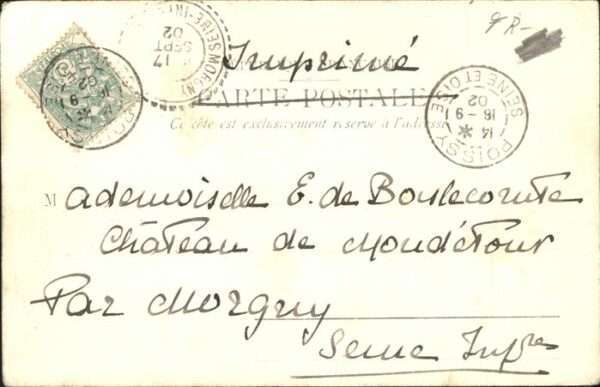 9 R-
Imprimé
CARTE POSTALE
Ce côté est exclusivement réservé à l'adresse
Mademoiselle E. de Boulecomte
Château de Mondétour
Par Morgny
Seine Infre
POISSY
SEINE ET OISE
14 *
16 - 9
02
MORGNY
SEINE-INF
17
SEPT
02